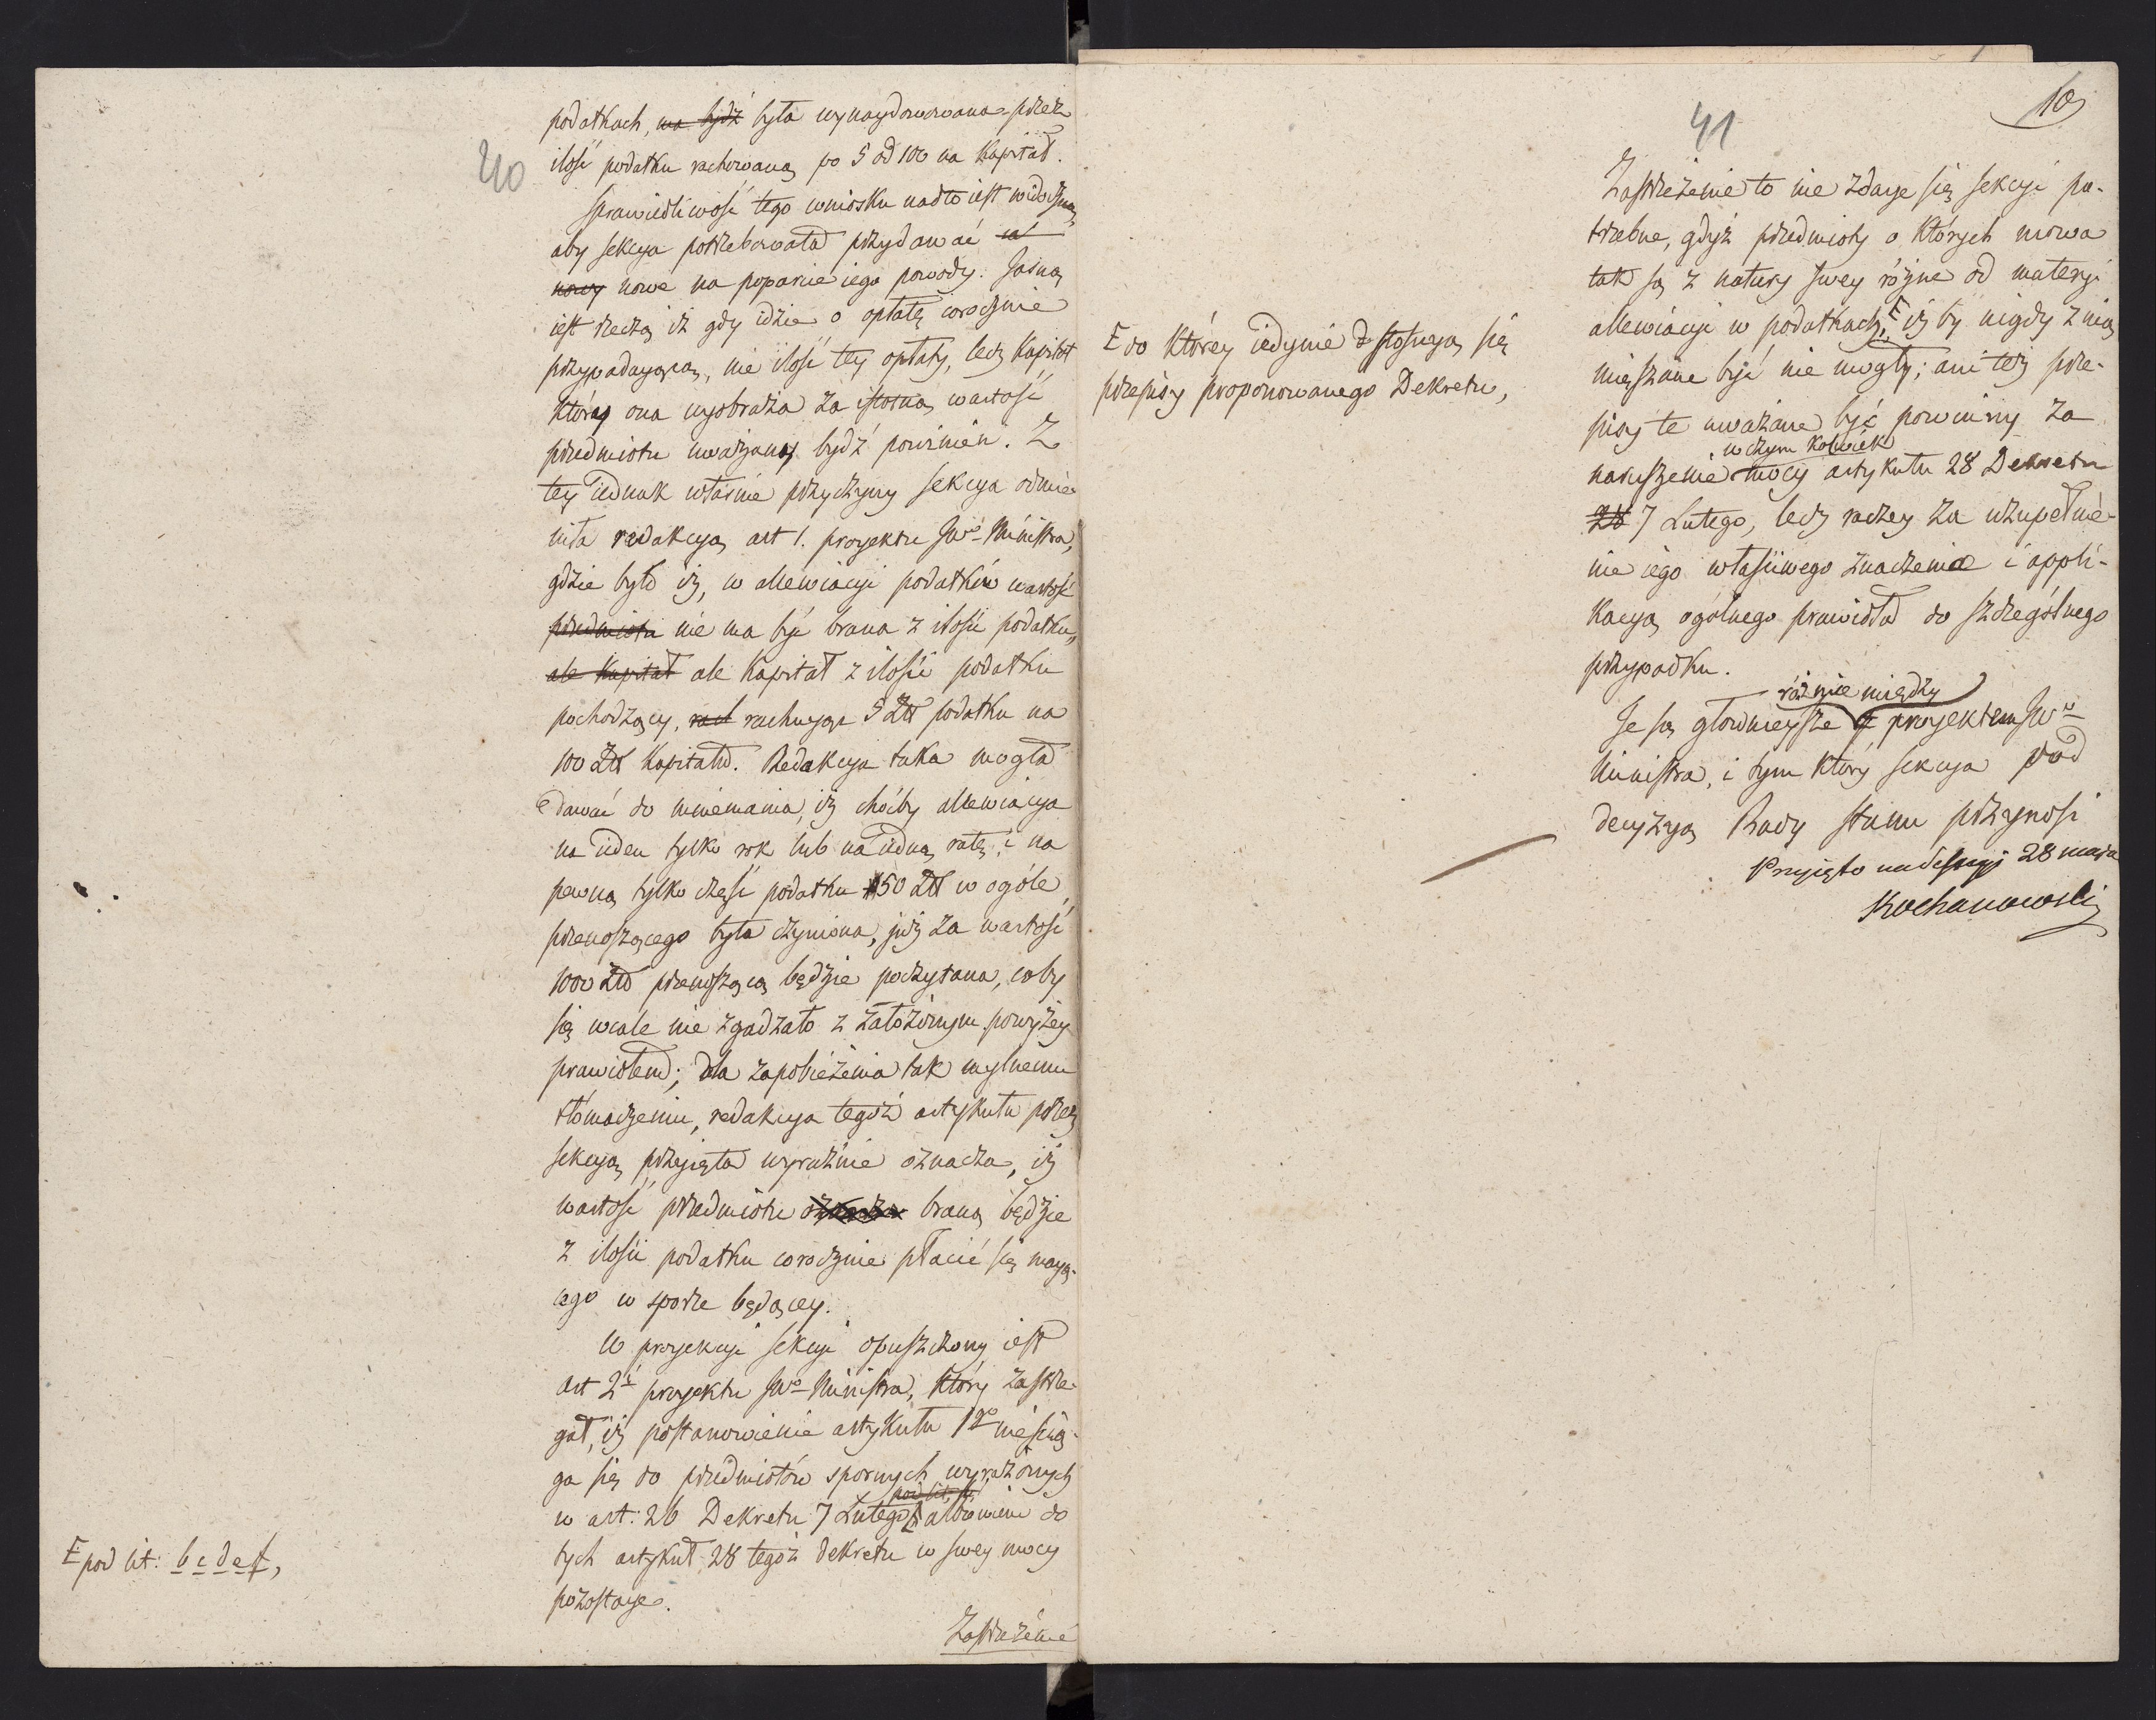 40
podatkach, ma bydź była wynaydowowana przez
ilość podatku rachowaną po 5 od 100 na kapitał.
Sprawiedliwość tego wniosku nadto iest widoczną,
aby sekcya potrzebowała przydawać
nowy nowe na poparcie iego powody. Jasną
iest rzeczą iż gdy idzie o opłatę corocznie
przypadaiącą, nie ilość tey opłaty, lecz kapitał
który ona wyobraża za istotną wartość
przedmiotu uważany bydź powinien. Z
tey iednak właśnie przyczyny sekcya odmie
niła redakcyą art 1. proyektu JWo Ministra,
gdzie było iż, w allewiacyi podatków wartość
przedmiotu nie ma być brana z ilości podatku,
ale kapitał ale kapitał z ilości podatku
pochodzący, rach rachuiąc 5 Zł podatku na
100 Zł kapitału. Redakcya taka mogła
dawać do mniemania, iż choćby allewiacya
na ieden tylko rok lub na iedną ratę i na
pewną tylko część podatku 50 Zł w ogóle
przenoszącego była czyniona, już za wartość
1000 Zł przenoszącą będzie poczytana, coby
się wcale nie zgadzało z założonym powyżey
prawidłem; dla zapobieżenia tak mylnemu
tłómaczeniu, redakcya tegoż artykułu przez
sekcyą przyięta wyraźnie oznacza, iż
wartość przedmiotu braną będzie
z ilości podatku corocznie płacić się maią-
cego w sporze będącey.
W proyekcyi sekcyi opuszczony iest
art 2i proyektu JWo Ministra, który zastrze-
gał, iż postanowienie artykułu 1go nie ścią-
ga się do przedmiotów spornych wyrażonych
pod lit.
w art: 26 Dekretu 7 Lutego albowiem do
tych artykuł 28 tegoż dekretu w swey mocy
pozostaye.
Zastrzeżenie
E pod lit: b c d e f,
41
10
Zastrzeżenie to nie zdaye się sekcyi po-
trzebne, gdyż przedmioty o których mowa
tak są z natury swey różne od materyi
allewiacyi w podatkach, E iż by nigdy z nią
mięszane być nie mogły; ani też prze-
pisy te uważane być powinny za
w czym kolwiek
naruszenie mocy artykułu 28 Dekretu
28 7 Lutego, lecz raczey za uzupełnie-
nie iego właściwego znaczenia i appli-
kacyą ogólnego prawidła do szczególnego
przypadku.
różnice między
Te są głownieysze z proyektem JWo
Ministra, i tym który sekcya pod
decyzyą Rady stanu przynosi
Przyięto na Sessyi 28 maja
Kochanowski
E do którey iedynie stosuyą się
przepisy proponowanego Dekretu,